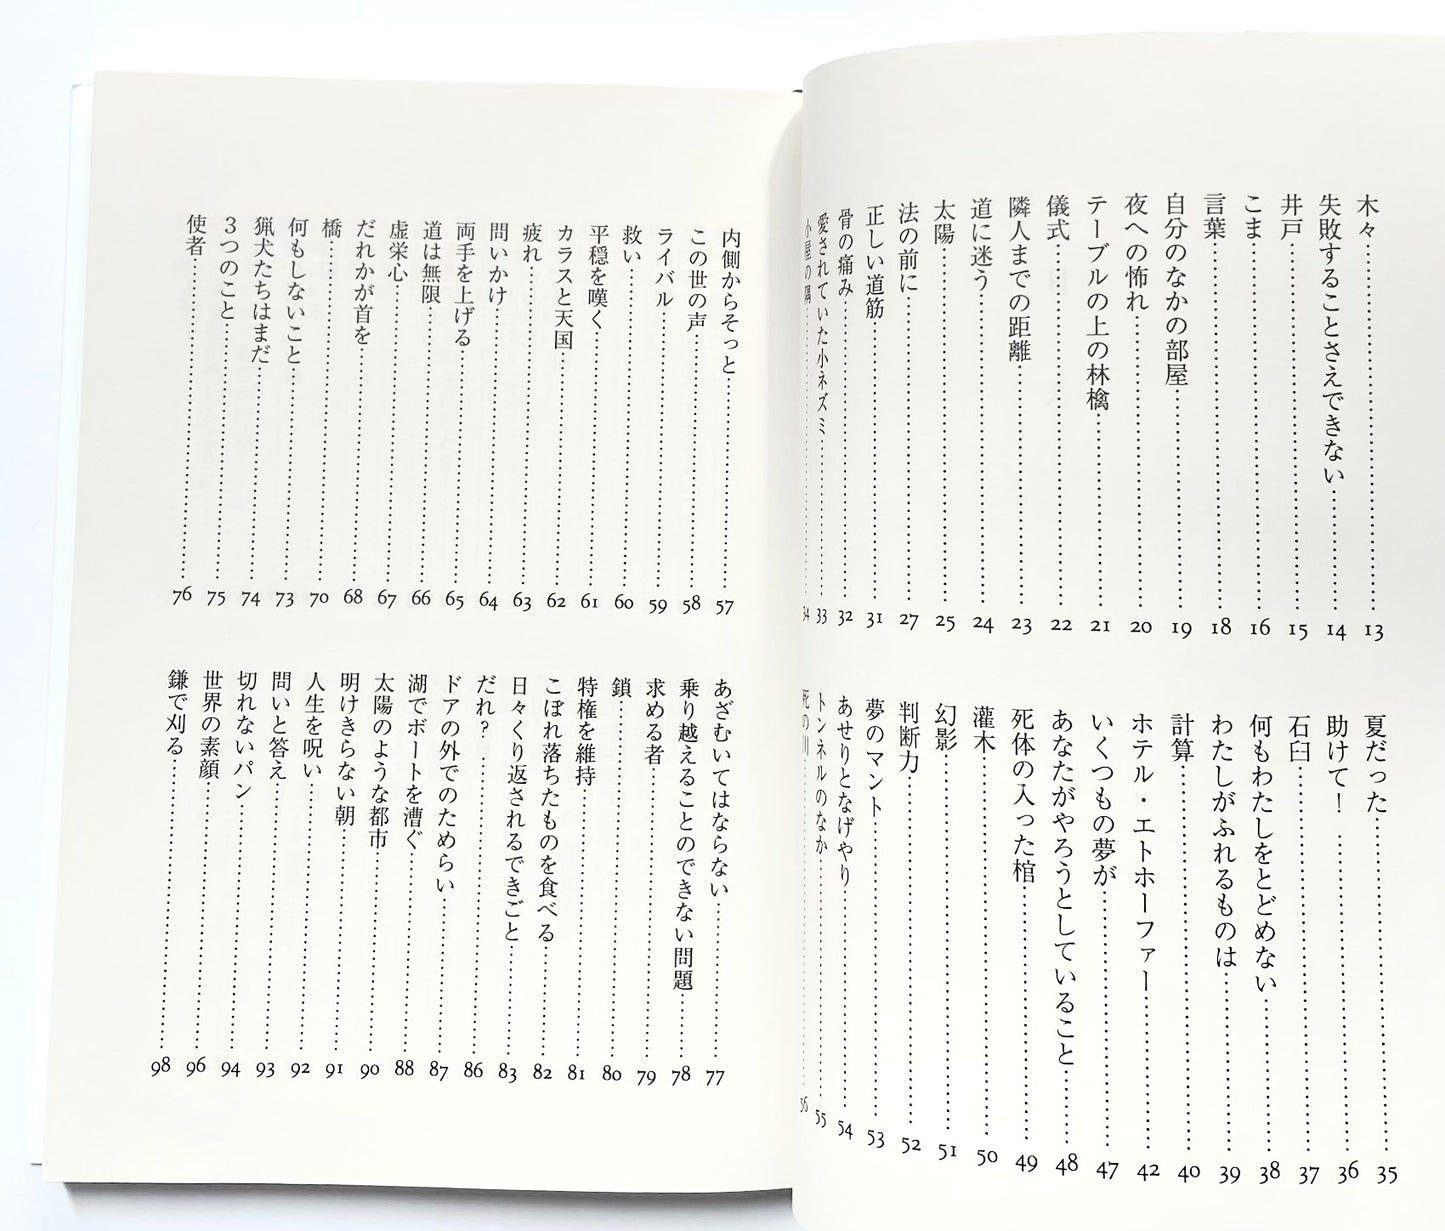 木々……13
失敗することさえできない……14
井戸……15
こま……16
言葉……18
自分のなかの部屋……19
夜への怖れ……20
テーブルの上の林檎……21
儀式……22
隣人までの距離……23
道に迷う……24
太陽……25
法の前に……27
正しい道筋……31
骨の痛み……32
愛されていた小ネズミ……33
小屋の隅……34
夏だった……35
助けて!……36
石臼……37
何もわたしをとどめない……38
わたしがふれるものは……39
計算……40
ホテル・エトホーファー……42
いくつもの夢が……47
あなたがやろうとしていること……48
死体の入った棺……49
灌木……50
幻影……51
判断力……52
夢のマント……53
あせりとなげやり……54
トンネルのなか……55
死の川……56
内側からそっと……57
この世の声……58
ライバル……59
救い……60
平穏を嘆く……61
カラスと天国……62
疲れ……63
問いかけ……64
両手を上げる……65
道は無限……66
虚栄心……67
だれかが首を……68
橋……70
何もしないこと……73
猟犬たちはまだ……74
3つのこと……75
使者……76
あざむいてはならない……77
乗り越えることのできない問題……78
求める者……79
鎖……80
特権を維持……81
こぼれ落ちたものを食べる……82
日々くり返されるできごと……83
だれ?……86
ドアの外でのためらい……87
湖でボートを漕ぐ……88
太陽のような都市……90
明けきらない朝……91
人生を呪い……92
問いと答え……93
切れないパン……94
世界の素顔……96
鎌で刈る……98